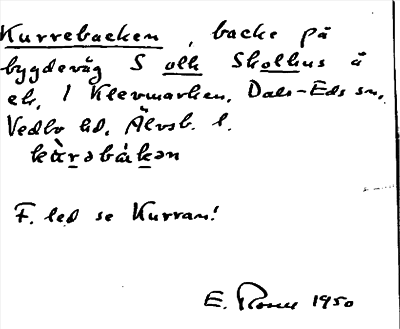 Kurrebacken, backe på
bygdeväg S olk Skolhus å
ek. 1 Klevmarken, Dals-Eds sn,
Vedbo hd, Älvsb. l.
F. led se Kurran!
E. 1950